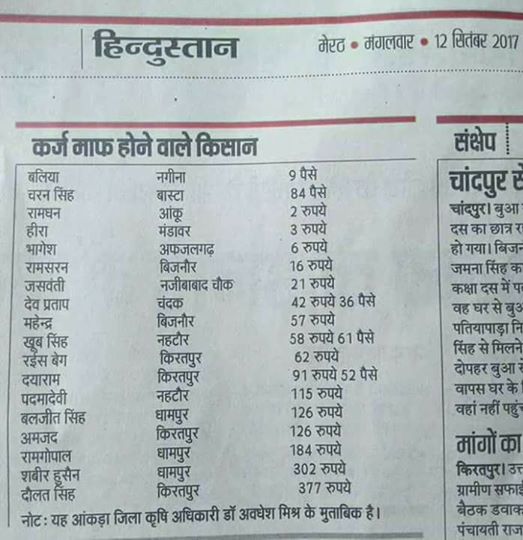 हिन्दुस्तान
मेरठ • मंगलवार • 12 सितंबर 2017
कर्ज माफ होने वाले किसान
बलिया नगीना 9 पैसे
चरन सिंह बास्टा 84 पैसे
रामघन आंकू 2 रुपये
हीरा मंडावर 3 रुपये
भागेश अफजलगढ़ 6 रुपये
रामसरन बिजनौर 16 रुपये
जसवंती नजीबाबाद चौक 21 रुपये
देव प्रताप चंदक 42 रुपये 36 पैसे
महेन्द्र बिजनौर 57 रुपये
खूब सिंह नहटौर 58 रुपये 61 पैसे
रईस बेग किरतपुर 62 रुपये
दयाराम किरतपुर 91 रुपये 52 पैसे
पदमादेवी नहटौर 115 रुपये
बलजीत सिंह धामपुर 126 रुपये
अमजद किरतपुर 126 रुपये
रामगोपाल धामपुर 184 रुपये
शबीर हुसैन धामपुर 302 रुपये
दौलत सिंह किरतपुर 377 रुपये
नोट : यह आंकड़ा जिला कृषि अधिकारी डॉ अवधेश मिश्र के मुताबिक है।
संक्षेप
चांदपुर से
चांदपुर। बुआ
दस का छात्र
हो गया।
जमना सिंह का
कक्षा दस में
वह घर से
पतियापाड़ा
सिंह से मिलने
दोपहर बुआ
वापस घर के
वहां नहीं
मांगों का
किरतपुर।
ग्रामीण
बैठक
पंचायती राज